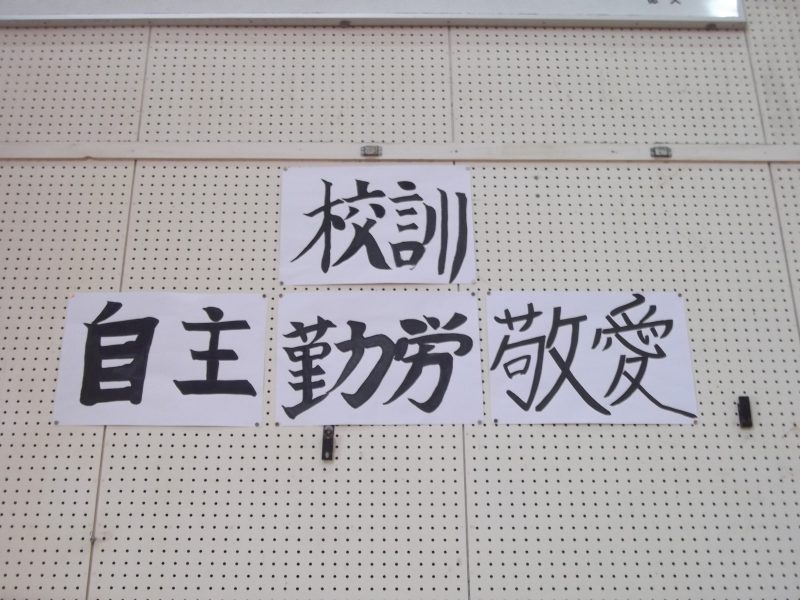 校訓
自主 勤労 敬愛